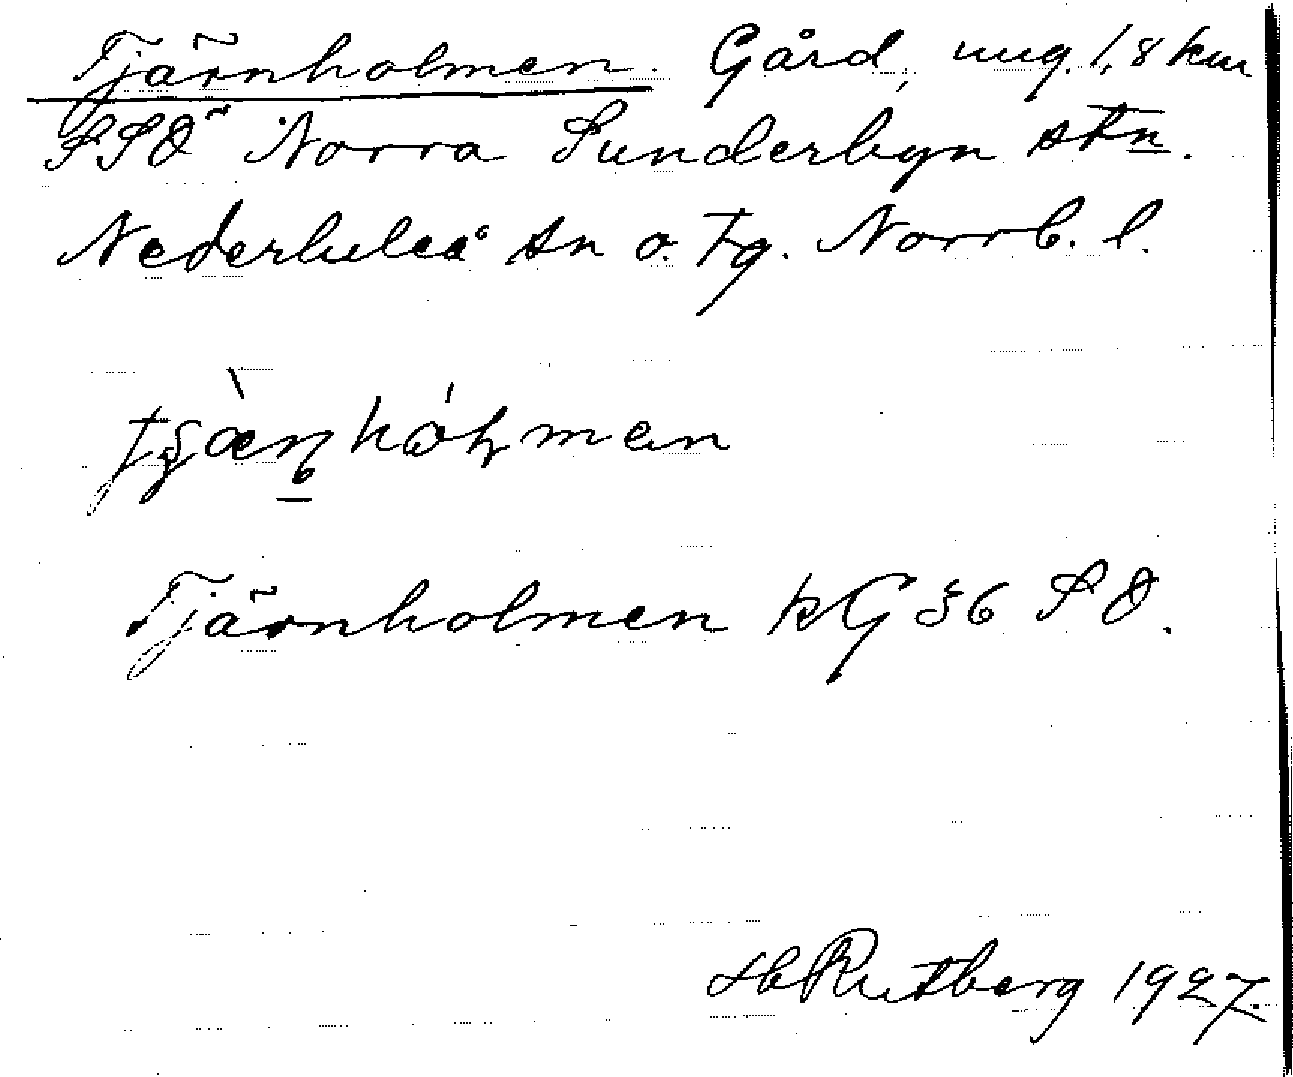 Tjärnholmen. Gård, ung. 1,8 km
SSÖ Norra Sunderbyn stn.
Nederluleå sn o. tg. Norrb. l.
Tjärnholmen kG 36 SO.
H Rutberg 1927.